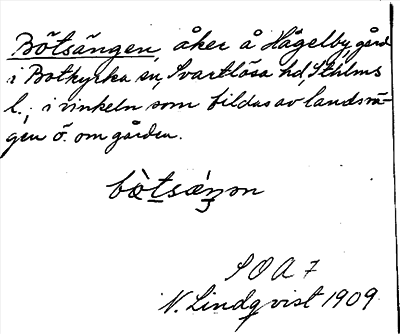 Bötsängen, åker å Hågelby, gård
i Botkyrka sn, Svartlösa hd, Sthlms
l., i vinkeln som bildas av landsvä-
gen ö. om gården.
SOA 7
N. Lindqvist 1909.